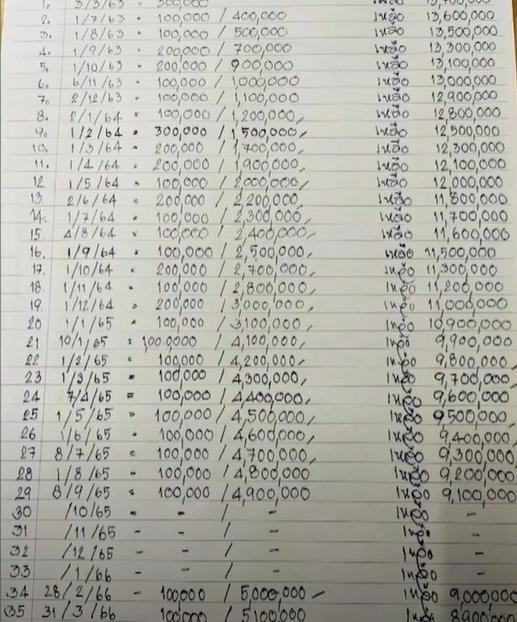 1. 3/3/63 - 300,000 13,700,000
2. 1/7/63 - 100,000 / 400,000 เหลือ 13,600,000
3. 1/8/63 - 100,000 / 500,000 เหลือ 13,500,000
4. 1/9/63 - 200,000 / 700,000 เหลือ 13,300,000
5. 1/10/63 - 200,000 / 900,000 เหลือ 13,100,000
6. 6/11/63 - 100,000 / 1,000,000 เหลือ 13,000,000
7. 2/12/63 - 100,000 / 1,100,000 เหลือ 12,900,000
8. 2/1/64 - 100,000 / 1,200,000 เหลือ 12,800,000
9. 1/2/64 - 300,000 / 1,500,000 เหลือ 12,500,000
10. 1/3/64 - 200,000 / 1,700,000 เหลือ 12,300,000
11. 1/4/64 - 200,000 / 1,900,000 เหลือ 12,100,000
12 1/5/64 - 100,000 / 2,000,000 เหลือ 12,000,000
13 2/6/64 - 200,000 / 2,200,000 เหลือ 11,800,000
14. 1/7/64 - 100,000 / 2,300,000 เหลือ 11,700,000
15. 4/8/64 - 100,000 / 2,400,000 เหลือ 11,600,000
16. 1/9/64 - 100,000 / 2,500,000 เหลือ 11,500,000
17. 1/10/64 - 200,000 / 2,700,000 เหลือ 11,300,000
18. 1/11/64 - 100,000 / 2,800,000 เหลือ 11,200,000
19 1/12/64 - 200,000 / 3,000,000 เหลือ 11,000,000
20 1/1/65 - 100,000 / 3,100,000 เหลือ 10,900,000
21. 10/1/65 - 100.0000 / 4,100,000 เหลือ 9,900,000
22 1/2/65 - 100,000 / 4,200,000 เหลือ 9,800,000
23 1/3/65 - 100,000 / 4,300,000 เหลือ 9,700,000
24 7/4/65 = 100,000 / 4,400,000 เหลือ 9,600,000
25 1/5/65 - 100,000 / 4,500,000 เหลือ 9,500,000
26 1/6/65 - 100,000 / 4,600,000 เหลือ 9,400,000
27 8/7/65 - 100,000 / 4,700,000 เหลือ 9,300,000
28 1/8/65 - 100,000 / 4,800,000 เหลือ 9,200,000
29 8/9/65 - 100,000 / 4,900,000 เหลือ 9,100,000
30 /10/65 - - / - เหลือ -
31 /11/65 - - / - เหลือ -
32 /12/65 - - / - เหลือ -
33 /1/66 - - / - เหลือ -
34 28/2/66 - 100,000 / 5,000,000 เหลือ 9,000,000
35 31/3/66 100,000 / 5,100,000 เหลือ 8,900,000